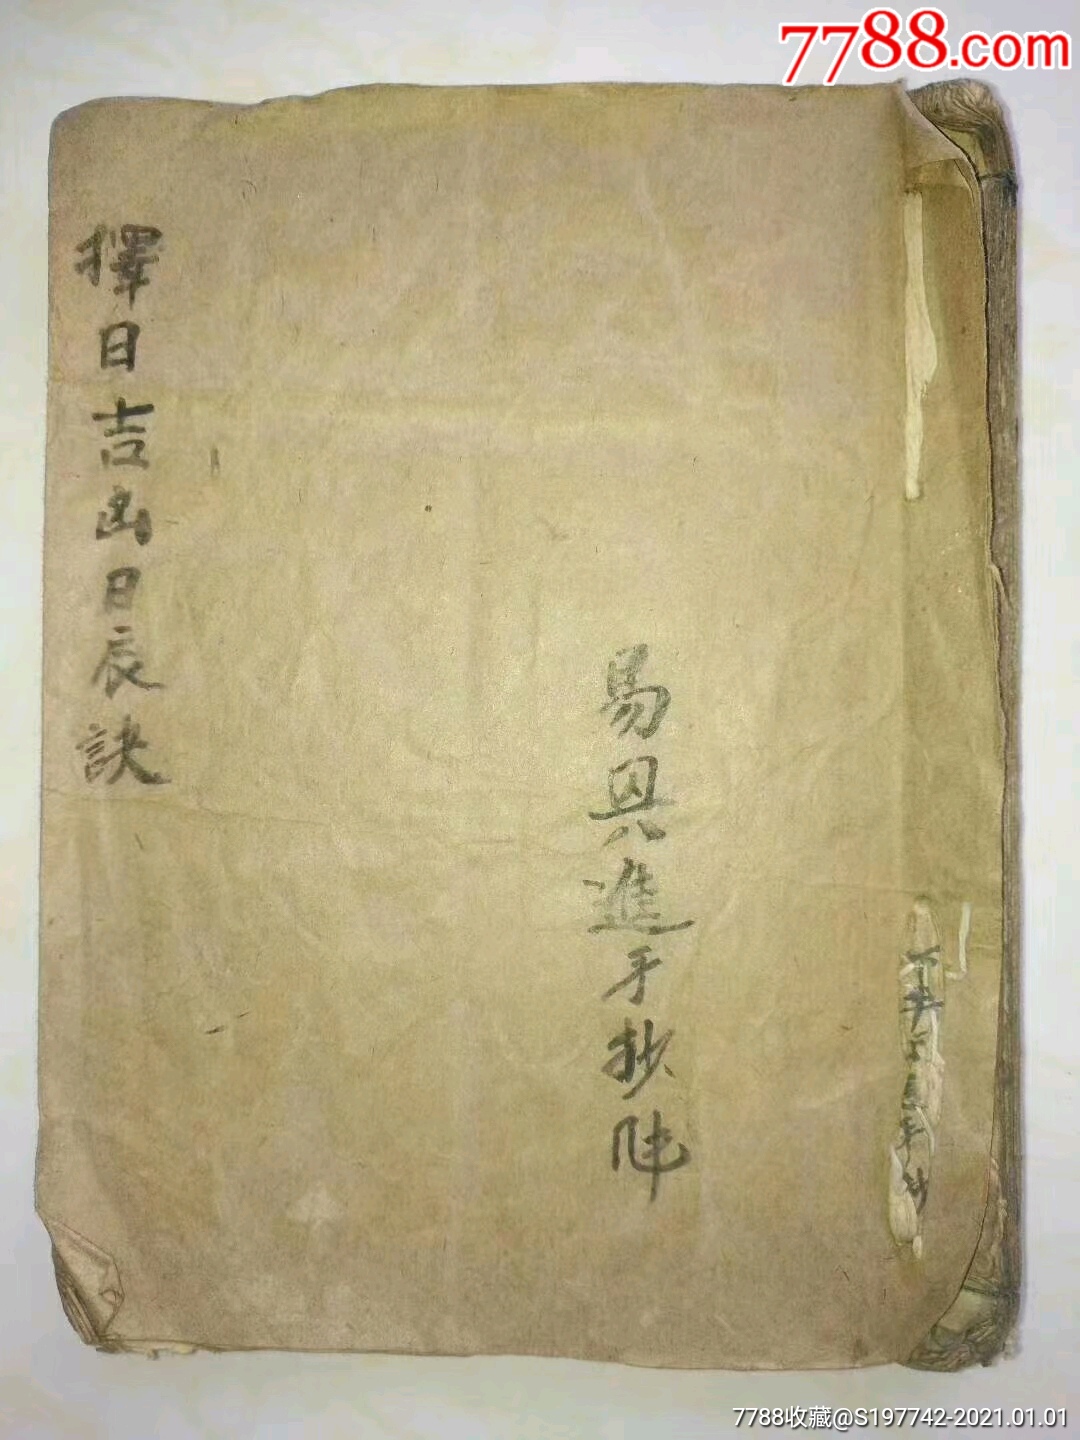 7788.com
擇日吉凶日辰訣
易興進手抄
7788收藏@S197742-2021.01.01